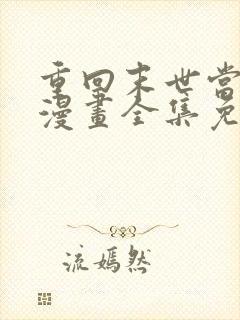 重回末世當
漫畫全集免
流嫣然